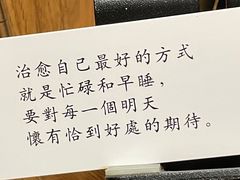 治愈自己最好的方式
就是忙碌和早睡，
要對每一個明天
懷有恰到好處的期待。